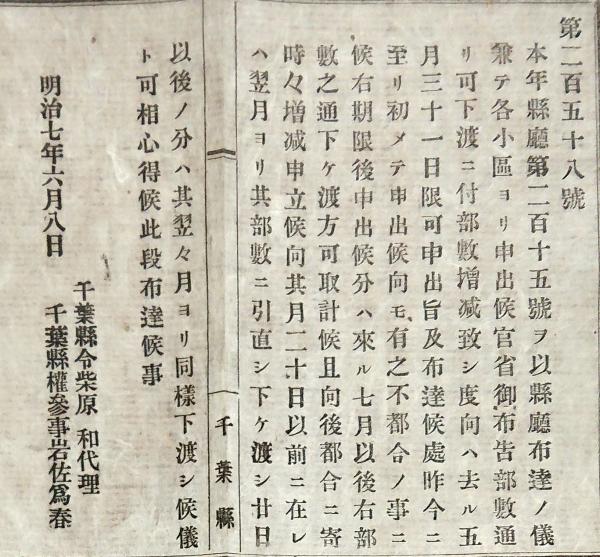 第二百五十八號
本年縣廳第二百十五號ヲ以縣廳布達ノ儀
兼テ各小區ヨリ申出候官省御布告部數通
リ可下渡ニ付部數增減致シ度向ハ去ル五
月三十一日限可申出旨及布達候處昨今ニ
至リ初メテ申出候向モ有之不都合ノ事ニ
候右期限後申出候分ハ來ル七月以後右部
數之通下ケ渡方可取計候且向後都合ニ寄
時々增減申立候向其月二十日以前ニ在レ
ハ翌月ヨリ其部數ニ引直シ下ケ渡シ廿日
千葉縣
以後ノ分ハ其翌々月ヨリ同樣下渡シ候儀
ト可相心得候此段布達候事
明治七年六月八日
千葉縣令柴原 和代理
千葉縣權參事岩佐爲春